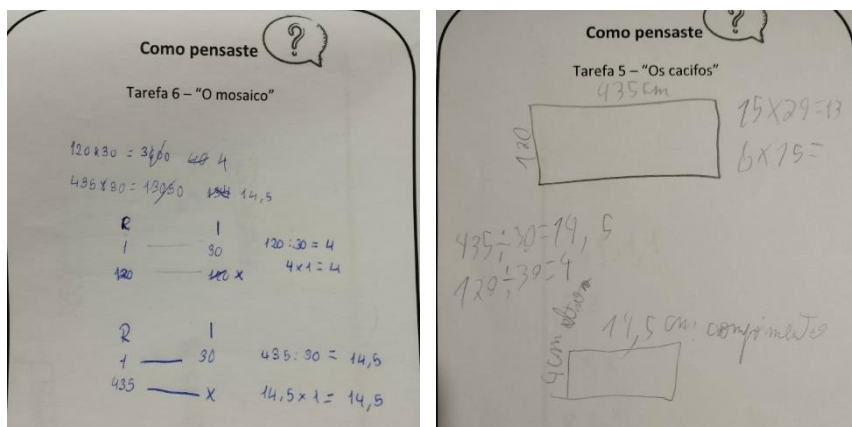 Como pensaste ?
Tarefa 6 – “O mosaico”
120x30 = 3600 4
435x30 = 13050 14,5
R I
1 30
120 x
120:30 = 4
4x1=4
R I
1 30
435 x
435:30 = 14,5
14,5x1= 14,5
Como pensaste ?
Tarefa 5 – “Os cacifos”
435cm
120
15X29=13
6X15=
435÷30=14,5
120÷30=4
14,5 cm comprimento
4cm